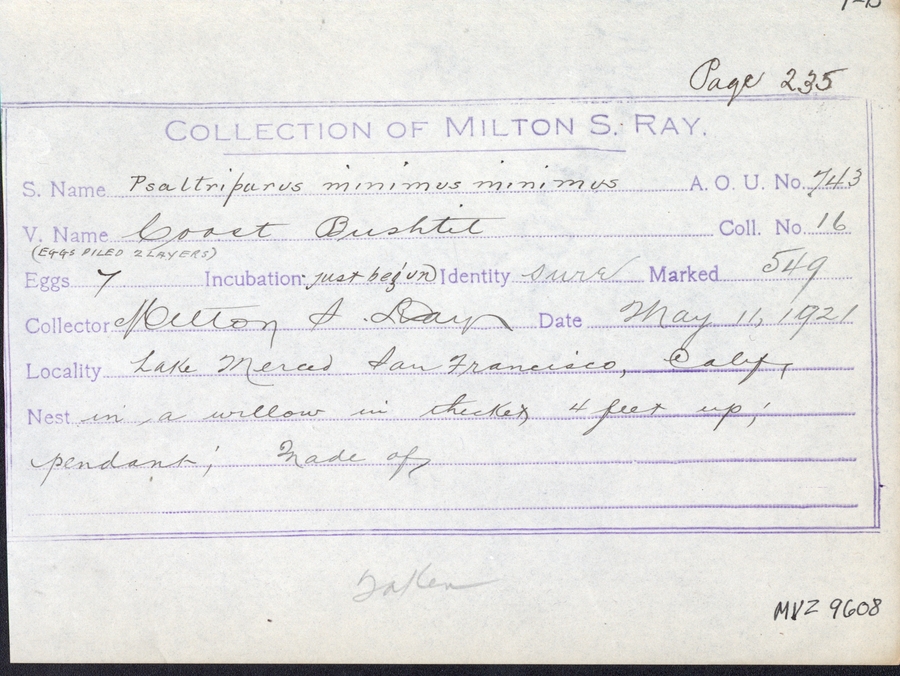 Page 235
COLLECTION OF MILTON S. RAY.
S. Name Psaltriparus minimus minimus A. O. U. No. 743
V. Name Coast Bushtit Coll. No. 16
(EGGS PILED 2 LAYERS)
Eggs 7 Incubation just begun Identity sure Marked 549
Collector Milton S. Ray Date May 11, 1921
Locality Lake Merced San Francisco, Calif,
Nest in a willow in thicket, 4 feet up;
pendant; Made of
Taken
MVZ 9608